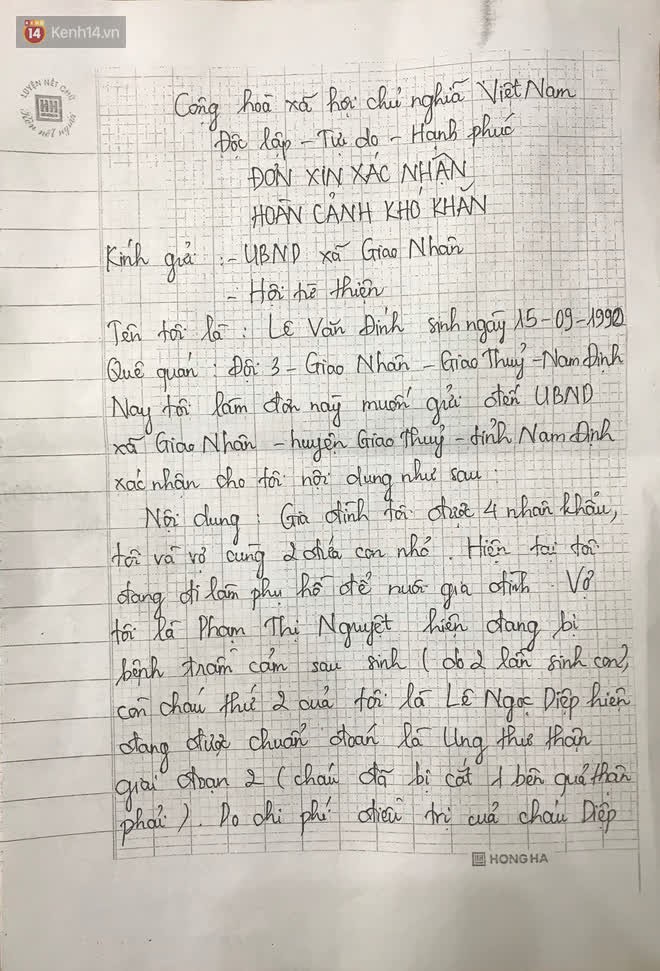 14 Kenh14.vn
LUYỆN NÉT CHỮ
Rèn nết người
HH
Cộng hoà xã hội chủ nghĩa Việt Nam
Độc lập - Tự do - Hạnh phúc
ĐƠN XIN XÁC NHẬN
HOÀN CẢNH KHÓ KHĂN
Kính gửi :- UBND xã Giao Nhân
- Hội từ thiện
Tên tôi là : Lê Văn Đính sinh ngày 15-09-1992
Quê quán : Đội 3 - Giao Nhân - Giao Thuỷ - Nam Định
Nay tôi làm đơn này muốn gửi đến UBND
xã Giao Nhân - huyện Giao Thuỷ - tỉnh Nam Định
xác nhận cho tôi nội dung như sau :
Nội dung : Gia đình tôi được 4 nhân khẩu,
tôi và vợ cùng 2 đứa con nhỏ. Hiện tại tôi
đang đi làm phụ hồ để nuôi gia đình. Vợ
tôi là Phạm Thị Nguyệt hiện đang bị
bệnh trầm cảm sau sinh ( cả 2 lần sinh con),
còn cháu thứ 2 của tôi là Lê Ngọc Diệp hiện
đang được chuẩn đoán là Ung thư thận
giai đoạn 2 ( cháu đã bị cắt 1 bên quả thận
phải ). Do chi phí điều trị của cháu Diệp
HH HONG HA